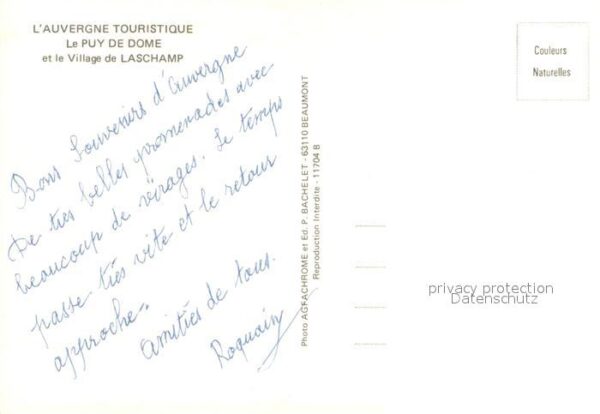 L'AUVERGNE TOURISTIQUE
Le PUY DE DOME
et le Village de LASCHAMP
Bons Souvenirs d'Auvergne
De très belles promenades avec
beaucoup de virages. Le temps
passe très vite et le retour
approche.
Amitiés de tous.
Roquain
Photo AGFACHROME et Ed. P. BACHELET - 63110 BEAUMONT
Reproduction Interdite - 11704 B
Couleurs
Naturelles
privacy protection
Datenschutz